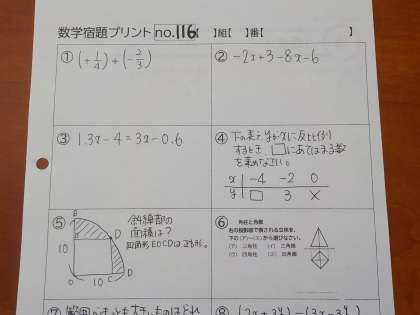 数学宿題プリント no.116【 】組【 】番【 】
① (+1/4)+(-2/3)
② -2x+3-8x-6
③ 1.3x-4=3x-0.6
④ 下の表で、yがxに反比例
するとき、□にあてはまる数
を求めなさい。
x -4 -2 0
y □ 3 ×
⑤ 斜線部の
面積は?
四角形EOCDは正方形。
10
D
O 10 C
⑥ 角柱と角錐
右の投影図で表される立体を、
下の(ア)~(エ)から選びなさい。
(ア) 三角柱 (イ) 三角錐
(ウ) 四角柱 (エ) 四角錐
⑦
⑧